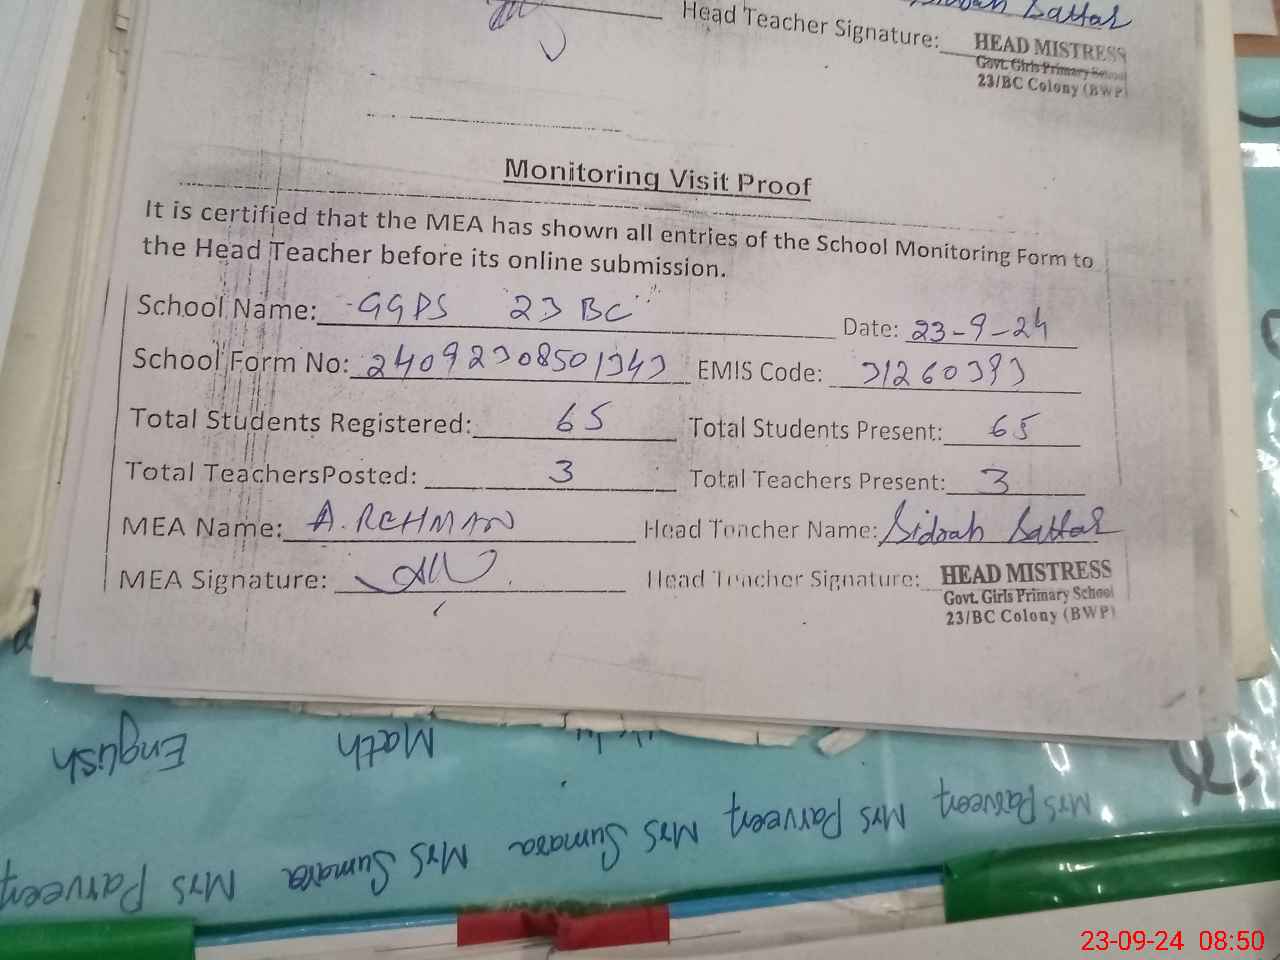 Head Teacher Signature:
Sidrah Sattar
HEAD MISTRESS
Govt. Girls Primary School
23/BC Colony (BWP)
Monitoring Visit Proof
It is certified that the MEA has shown all entries of the School Monitoring Form to
the Head Teacher before its online submission.
School Name: GGPS 23 BC Date: 23-9-24
School Form No: 24092308501343 EMIS Code: 31260393
Total Students Registered: 65 Total Students Present: 65
Total TeachersPosted: 3 Total Teachers Present: 3
MEA Name: A. REHMAN Head Teacher Name: Sidrah Sattar
MEA Signature: Head Teacher Signature: HEAD MISTRESS
Govt. Girls Primary School
23/BC Colony (BWP)
English Math
Mrs Parveen Mrs Sumara Mrs Sumara Mrs Parveen Mrs Parveen
23-09-24 08:50